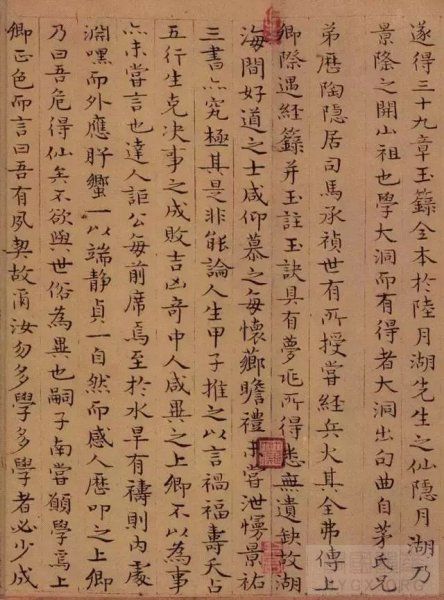 遂得三十九章玉籙全本於陸月湖先生之仙隱月湖乃
景隆之開山祖也學大洞而有得者大洞出句曲自茅氏兄
弟歷陶隱居司馬承禎世有所授嘗經兵火其全弗傳上
卿際遇經籙并玉註玉訣具有夢兆所得悉無遺缺故湖
海間好道之士咸仰慕之每懷薌瞻禮未嘗泄慢景祐
三書亦究極其是非能論人生甲子推之以言禍福壽夭占
五行生克决事之成敗吉凶奇中人咸異之上卿不以為事
亦未嘗言也達人詎公每前席焉至於水旱有禱則內處
淵嘿而外應肸蠁一以端静貞一自然而感人歷叩之上卿
乃曰吾危得仙矣不欲與世俗為異也嗣子南嘗願學焉上
卿正色而言曰吾有夙契故爾汝勿多學多學者必少成